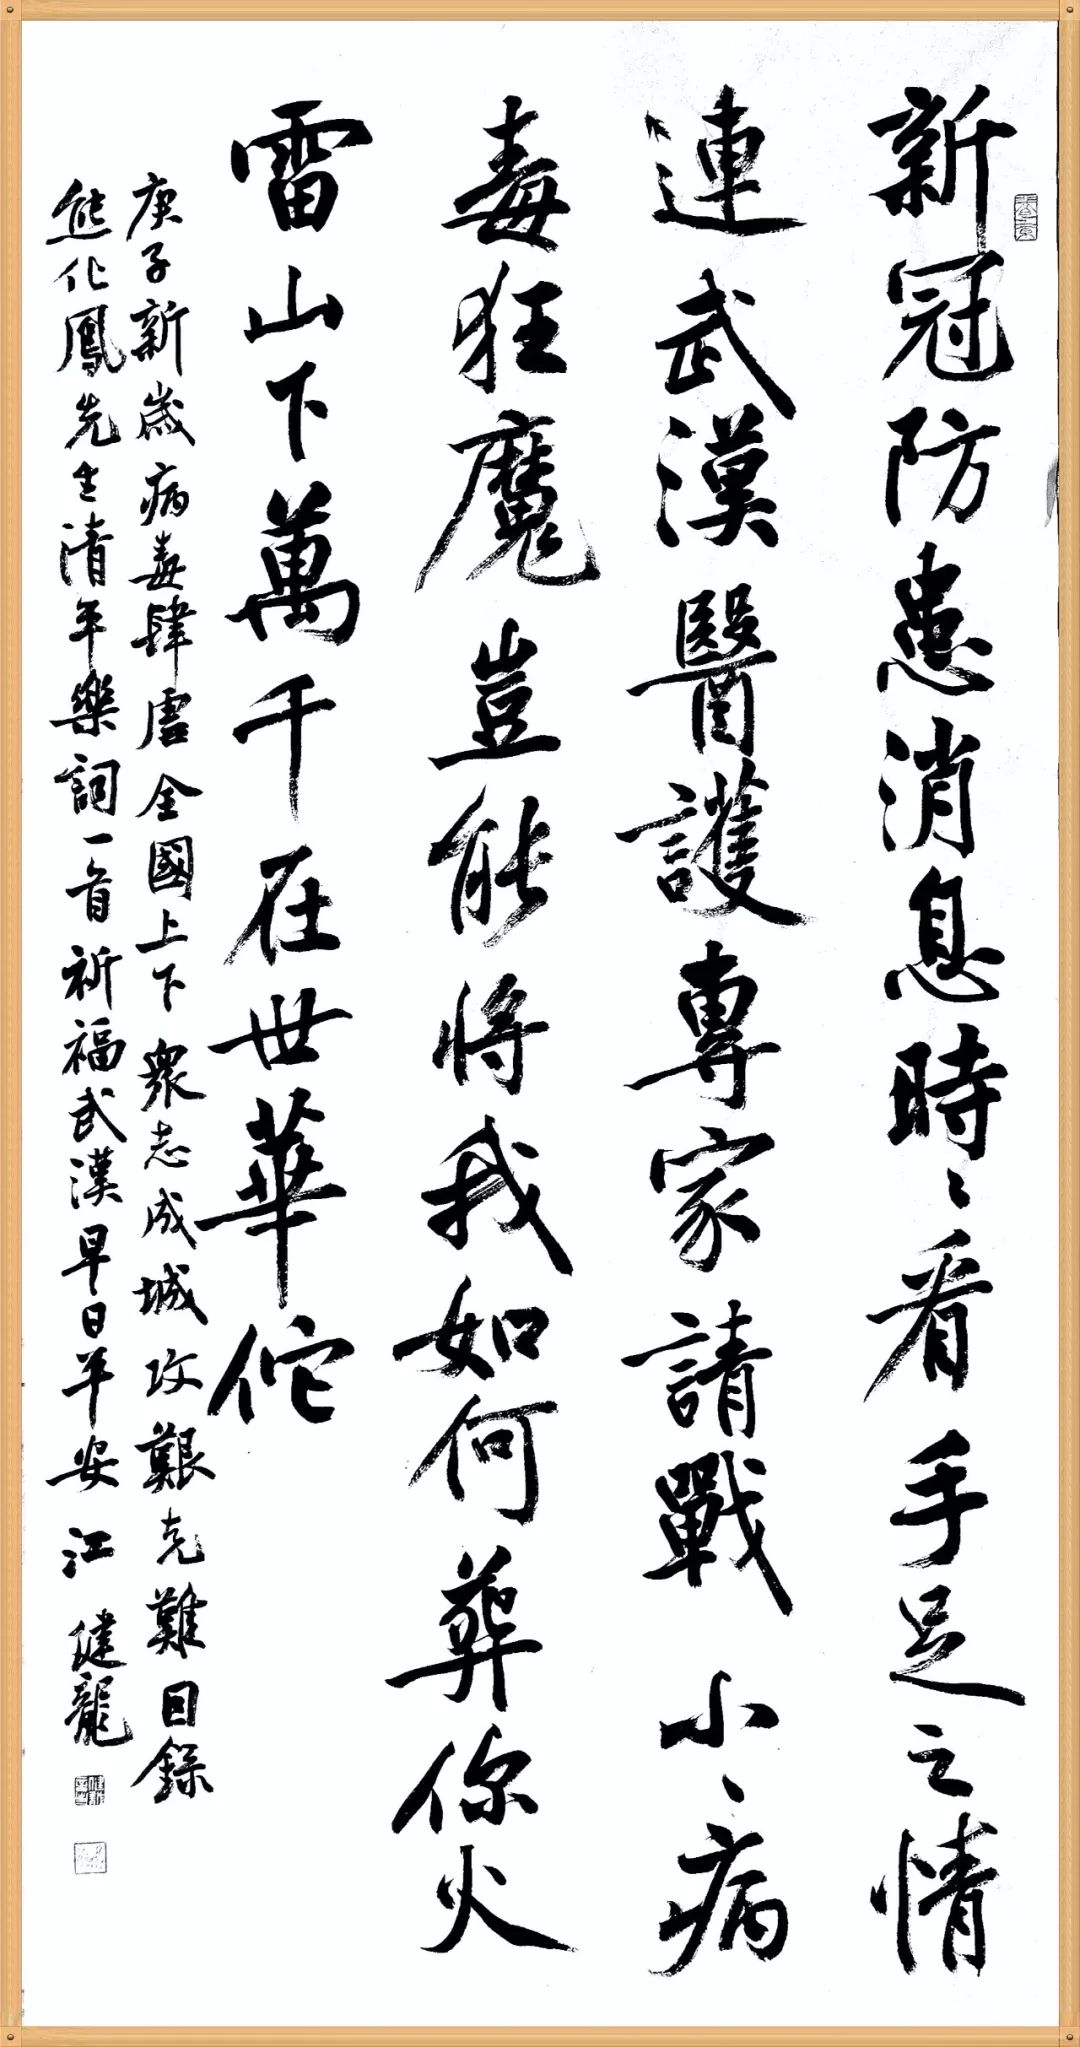 新冠防患消息時〻看手足之情
連武漢醫護專家請戰小〻病
毒狂魔豈能將我如何葬你火
雷山下萬千在世華佗
庚子新歲病毒肆虐全國上下衆志成城攻艱克難因錄
熊化鳳先生清平樂詞一首祈福武漢早日平安江健龍